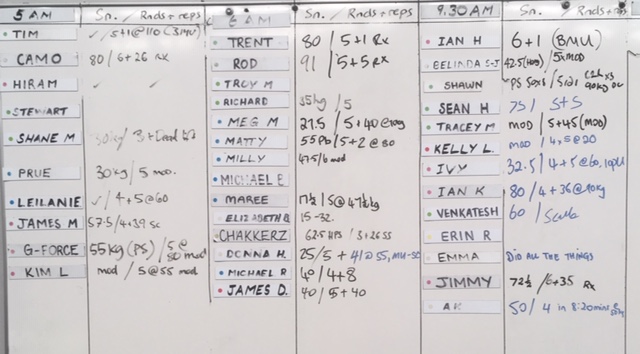 5 AM Sn. / Rnds + reps
TIM ✓ / 5+1@110 (3MU)
CAMO 80 / 6+26 Rx
HIRAM ✓ ✓
STEWART
SHANE M / 3+Dead
PRUE 30kg / 5 mod.
LEILANIE ✓ / 4+5@60
JAMES M 57.5/4+39 sc
G-FORCE 55kg (PS) / 5@ 80 mod
KIM L mod / 5@55 mod
6 AM Sn. / Rnds + reps
TRENT 80 / 5+1 Rx
ROD 91 / 5+5 Rx
TROY M
RICHARD 35kg / 5
MEG M 27.5 / 5+40@40kg
MATTY 55Pb / 5+2@80
MILLY 47.5/6 mod
MICHAEL B
MAREE 17½ / 5@47½kg
ELIZABETH B 15-32.
CHAKKERZ 62.5 HPS / 3+26 SS
DONNA H. 25/5 + 41@55, MU-SC
MICHAEL R 40 / 4+8
JAMES D. 40 / 5+40
9.30 AM Sn. / Rnds + reps
IAN H 6+1 (BMU)
BELINDA S-J 42.5 / 5x MOD
SHAWN PS 50x5 /
SEAN H 75 / 5+5
TRACEY M MOD / 5+45 (MOD)
KELLY L. mod / 4+5@20
IVY 32.5 / 4+5@60,
IAN K 80 / 4+36@40kg
VENKATESH 60 / Scale
ERIN R
EMMA DID ALL THE THINGS
JIMMY 72½ / 6+35 Rx
AK 50 / 4 in 8:20mins @